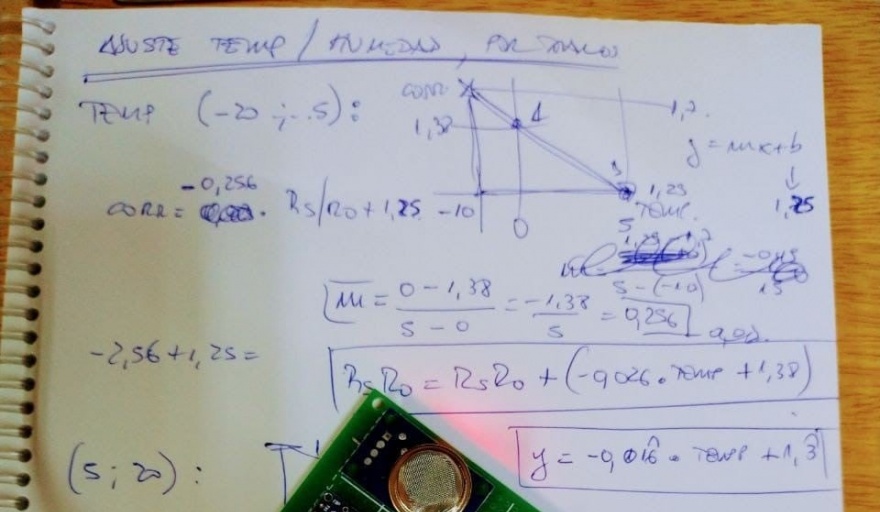 AJUSTE TEMP / HUMEDAD, POR TRAMOS
TEMP (-20 ; 5):
CORR
1,7
1,38
A
y = mx+b
1,25
B
1,25
TEMP.
-10
0
5
-0,256
CORR = . RS/RO + 1,25
m = 0-1,38 / 5-0 = -1,38 / 5 = 0,256
5-(-10)
15
-2,56 + 1,25 =
RsRo = RsRo + (-0,026 . TEMP + 1,38)
(5 ; 20) :
y = -0,016 . TEMP + 1,3